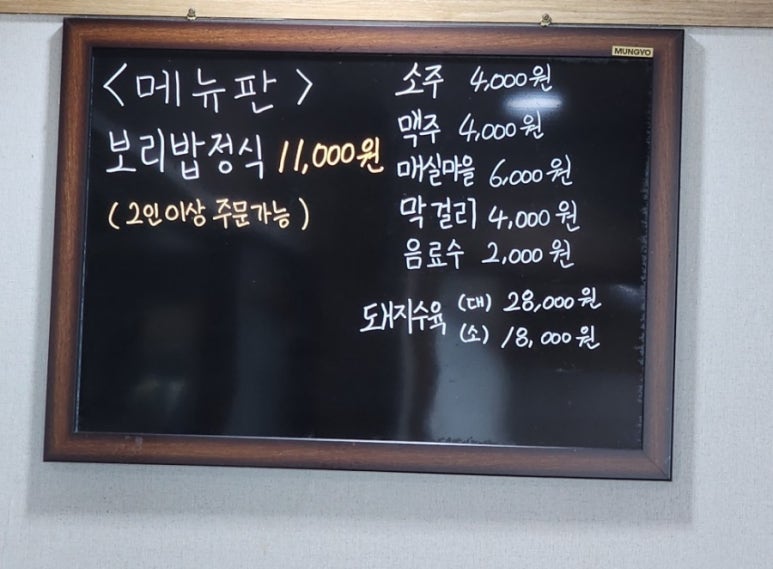 MUNGYO
<메뉴판>
보리밥정식 11,000원
(2인이상 주문가능)
소주 4,000원
맥주 4,000원
매실마을 6,000원
막걸리 4,000원
음료수 2,000원
돼지수육 (대) 28,000원
(소) 18,000원